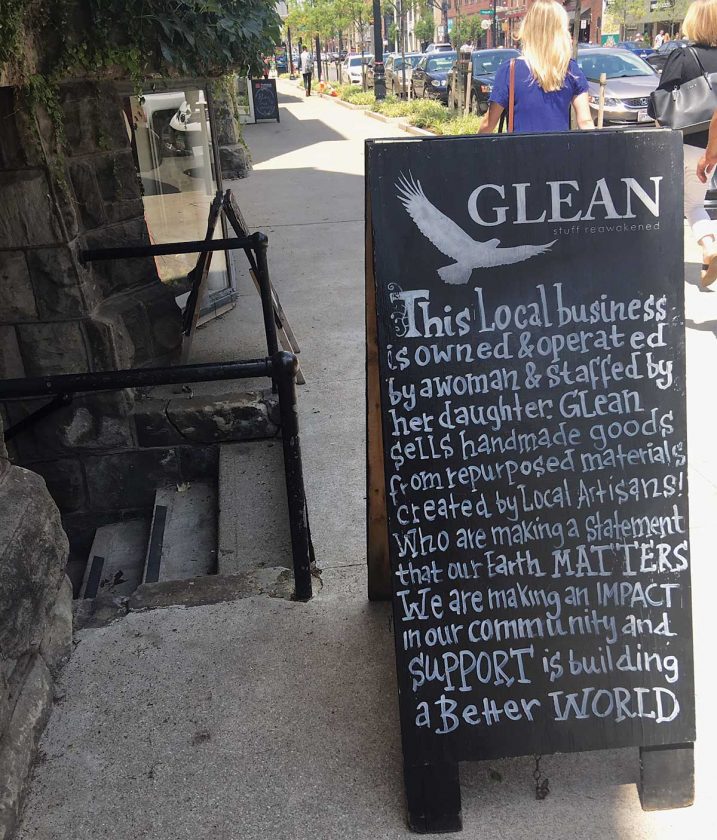 GLEAN
stuff reawakened
This Local business
is owned & operated
by a woman & staffed by
her daughter. GLean
sells handmade goods
from repurposed materials
created by Local Artisans!
Who are making a statement
that our Earth MATTERS
We are making an IMPACT
in our community and
SUPPORT is building
a Better WORLD